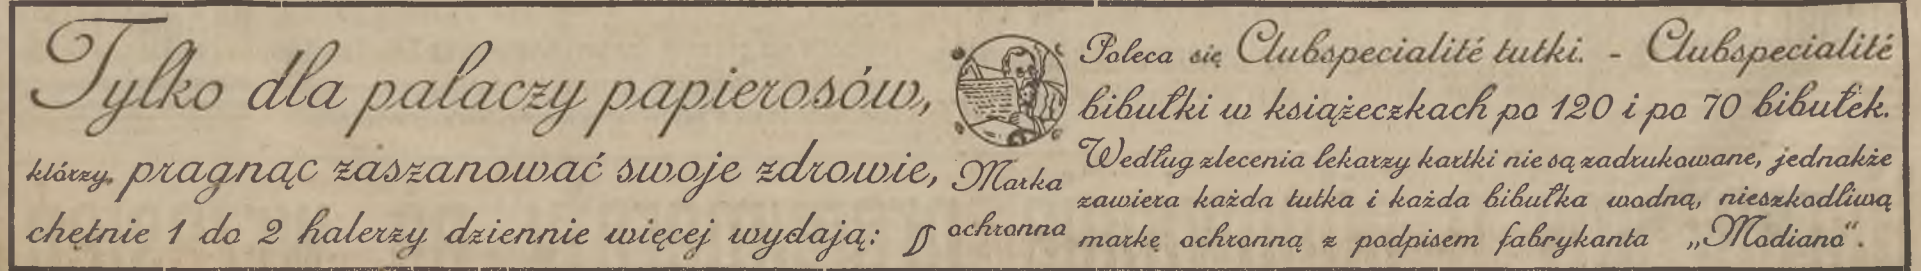 Tylko dla palaczy papierosów,
którzy, pragnąc zaszanować swoje zdrowie,
chętnie 1 do 2 halerzy dziennie więcej wydają:
Marka
ochronna
Poleca się Clubspecialité tutki. - Clubspecialité
bibułki w książeczkach po 120 i po 70 bibułek.
Według zlecenia lekarzy kartki nie są zadrukowane, jednakże
zawiera każda tutka i każda bibułka wodną, nieszkodliwą
markę ochronną z podpisem fabrykanta „Modiano".